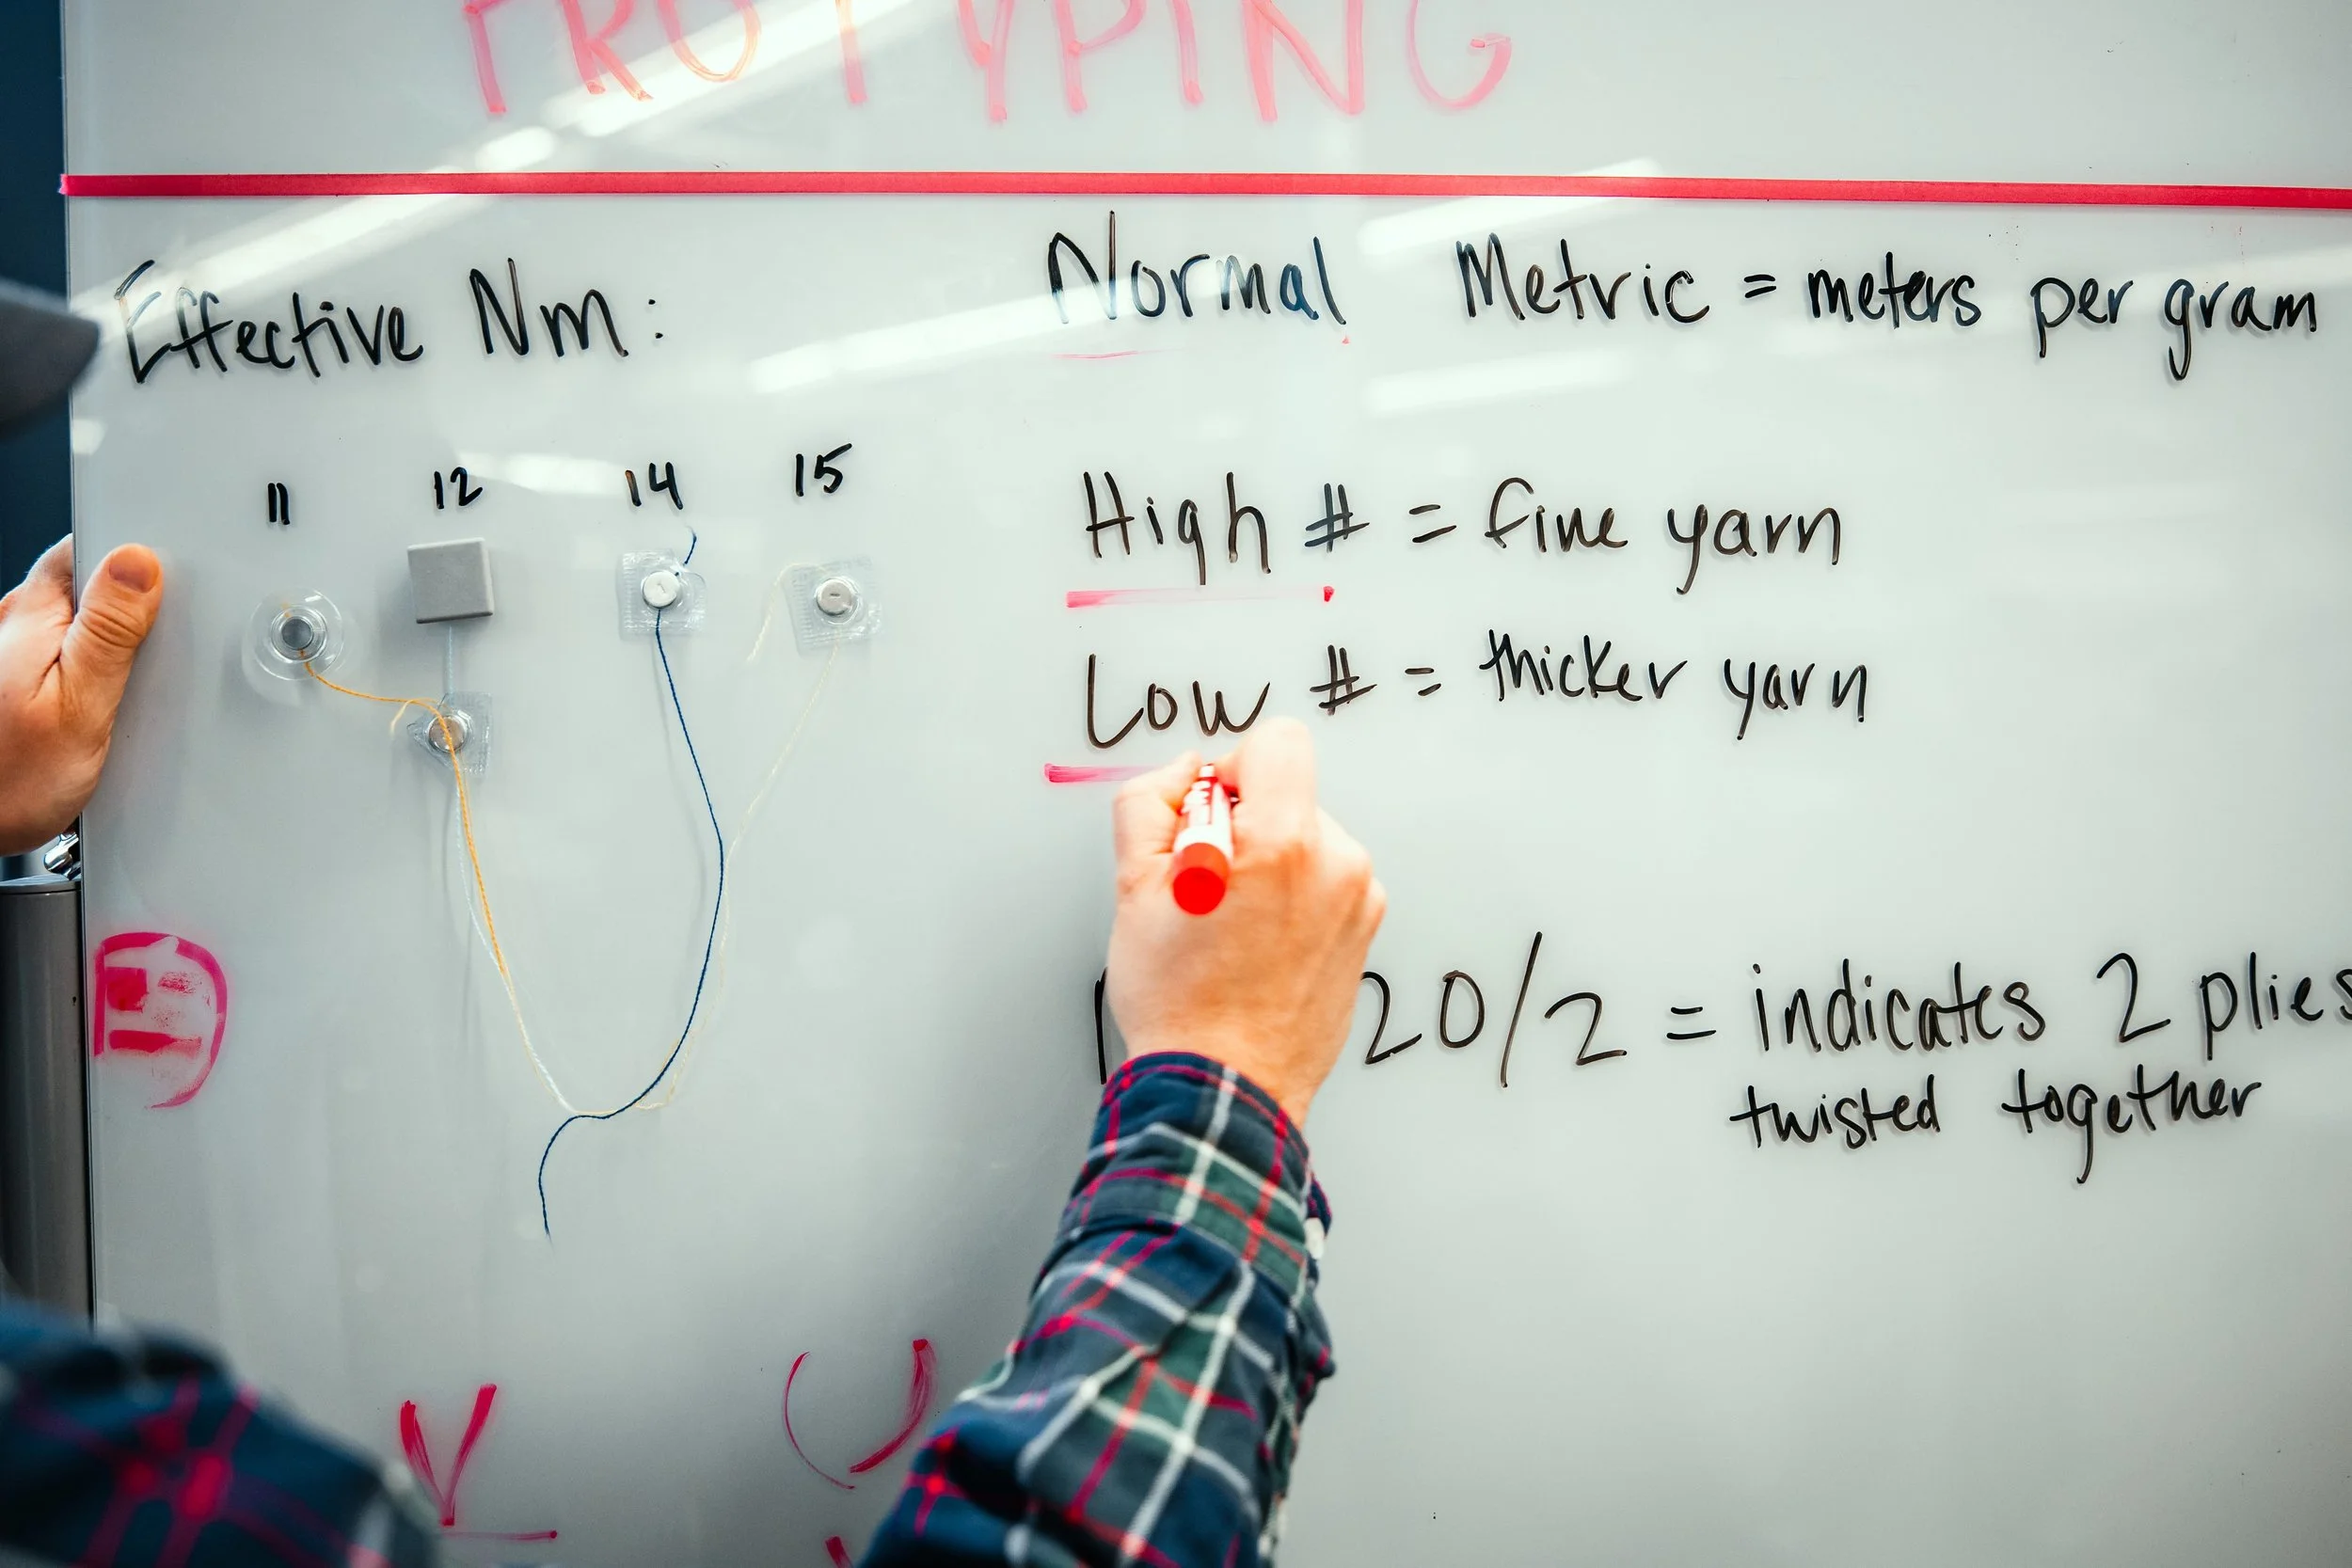 PROTYPING
Effective Nm:
11 12 14 15
Normal Metric = meters per gram
High # = fine yarn
Low # = thicker yarn
20/2 = indicates 2 plies
twisted together